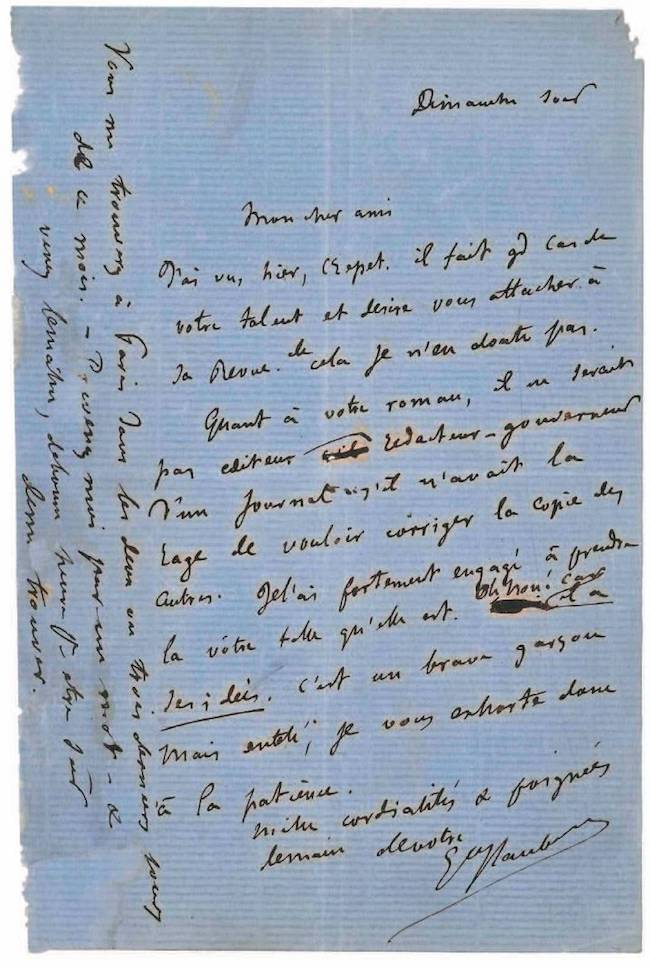 Dimanche soir
Mon cher ami
J'ai vu, hier, Crepet. il fait gd cas de
votre talent et desire vous attacher à
sa Revue. de cela je n'en doute pas.
Quant à votre roman, il ne serait
pas editeur redacteur-gouverneur
d'un journal s'il n'avait la
rage de vouloir corriger la copie des
autres. Je l'ai fortement engagé à prendre
la vôtre telle qu'elle est. Oh non! car
il a
ses idées. c'est un brave garçon
mais entêté; je vous exhorte donc
à la patience.
mille cordialités & poignées
de main de votre
G Flaubert
Vous me trouverez à Paris dans les deux ou trois derniers jours
de ce mois. – Prevenez moi par un mot – &
venez le matin, de bonne heure pr être sûr
de me trouver.